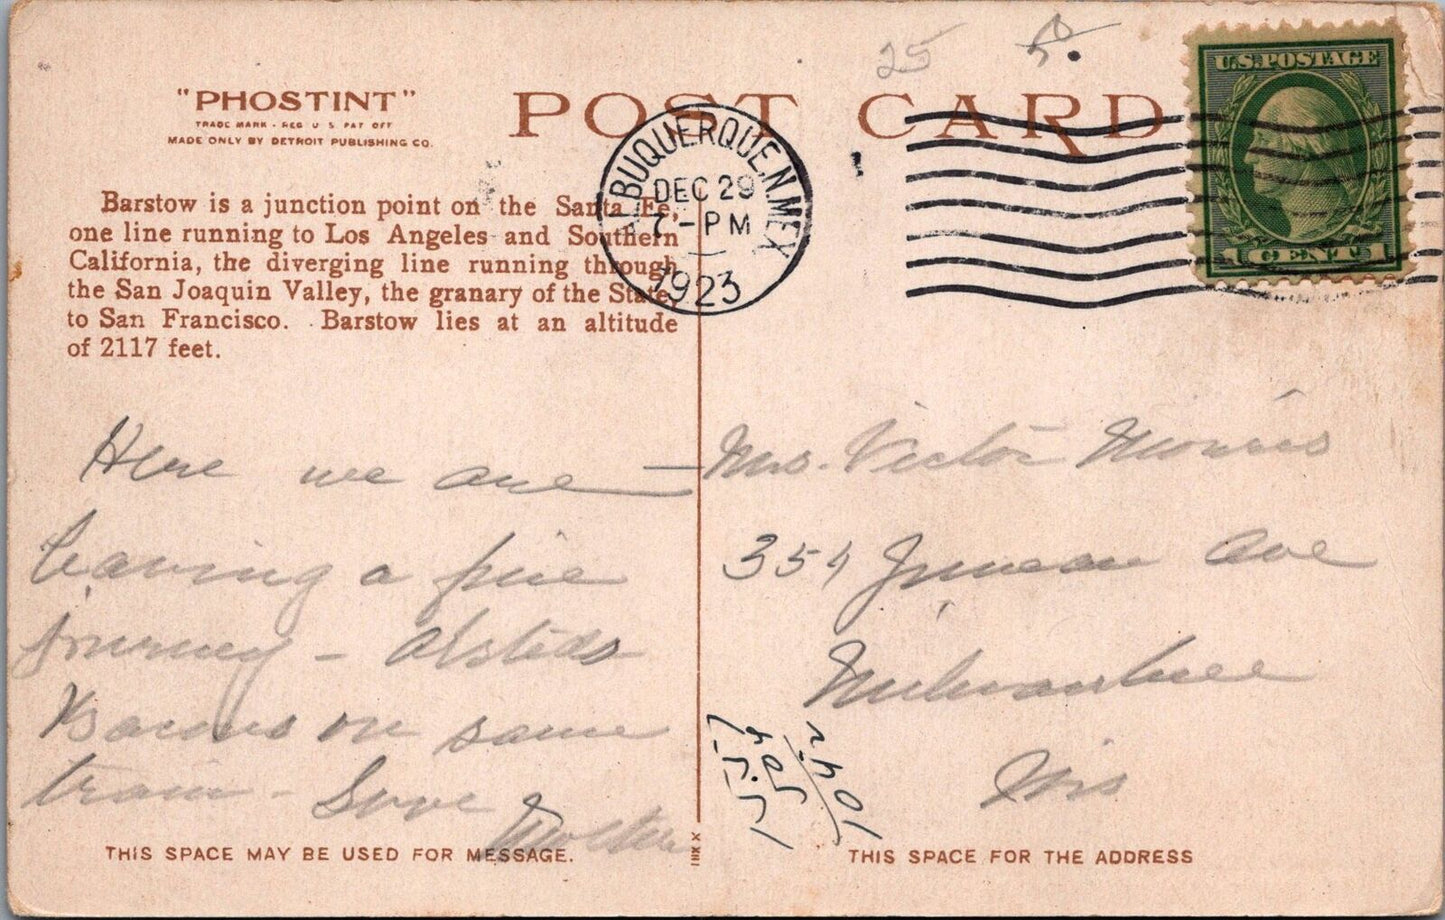 25 50.
"PHOSTINT"
TRADE MARK - REG U S PAT OFF
MADE ONLY BY DETROIT PUBLISHING CO.
POST CARD
U.S. POSTAGE
1 CENT 1
ALBUQUERQUE, N. MEX
DEC 29
7-PM
1923
Barstow is a junction point on the Santa Fe,
one line running to Los Angeles and Southern
California, the diverging line running through
the San Joaquin Valley, the granary of the State,
to San Francisco. Barstow lies at an altitude
of 2117 feet.
Here we are —
having a fine
journey -
on same
train - Love
Mother
Mrs. Victor Morris
354 Juneau Ave
Milwaukee
Wis
THIS SPACE MAY BE USED FOR MESSAGE.
THIS SPACE FOR THE ADDRESS